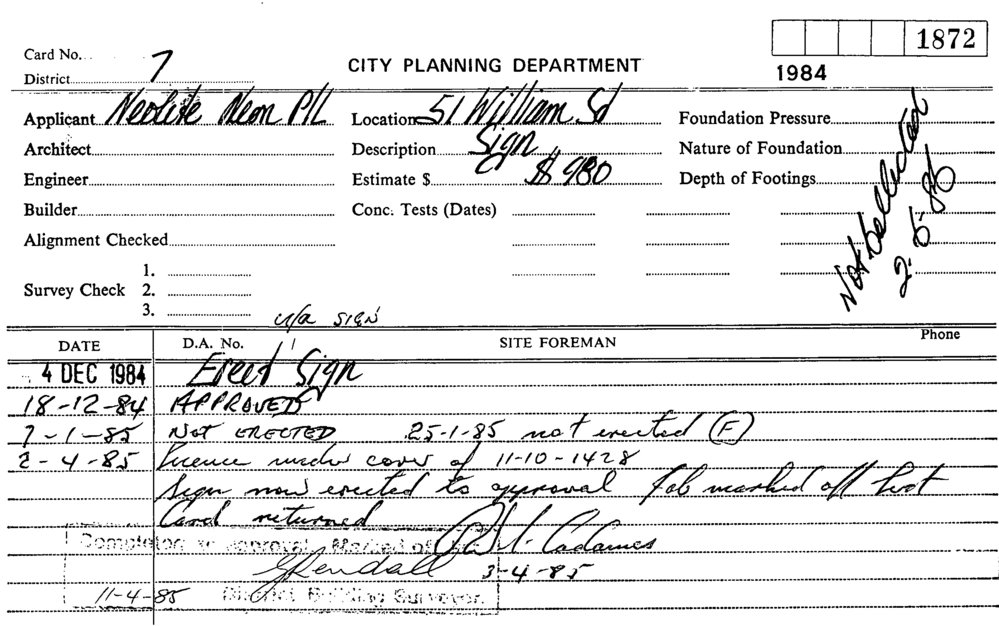 1872
Card No. 7
CITY PLANNING DEPARTMENT
1984
District
Applicant Neolite Neon P/L
Location 51 William Sd
Foundation Pressure
Architect
Description Sign
Nature of Foundation
Engineer
Estimate $ $ 980
Depth of Footings
Builder
Conc. Tests (Dates)
Not Collected
2-5-86
Alignment Checked
1.
Survey Check 2.
3.
u/a SIGN
DATE D.A. No. SITE FOREMAN Phone
4 DEC 1984 Erect Sign
18-12-84 APPROVED
7-1-85 NOT ERECTED 25-1-85 not erected (F)
2-4-85 licence under cover of 11-10-1428
Sign now erected to approval Job marked off list
Card returned
Completed as approval. Marked off
3-4-85
GKendall
11-4-85 District Building Surveyor.